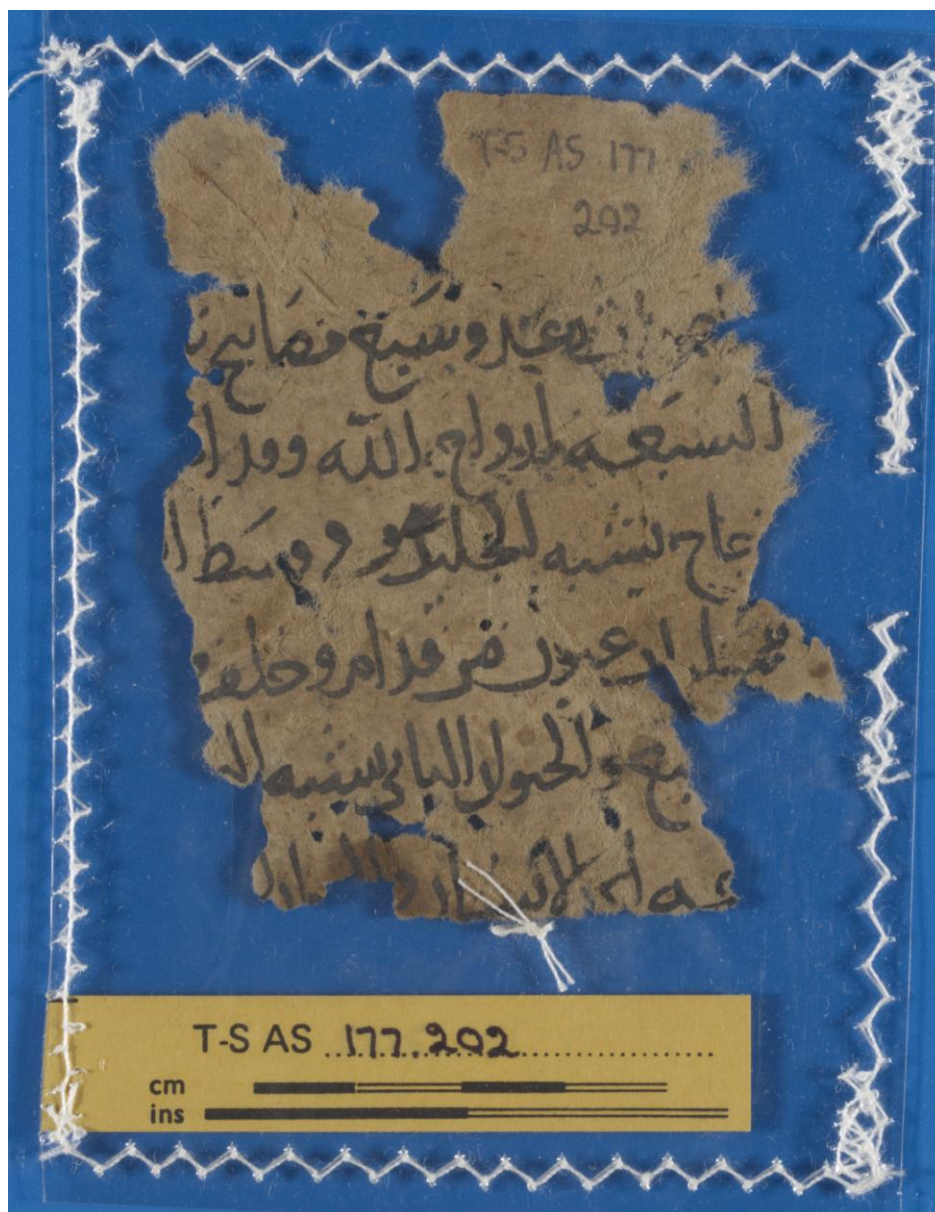 T-S AS 177.
202
رعد وسبع مصابيح
السبعه ارواح الله وقدا
زجاج يشبه الجليد هو ووسط ا
عيون من قدام وخلف
سبع والحيوان الثاني يشبه ال
T-S AS 177.202
cm
ins